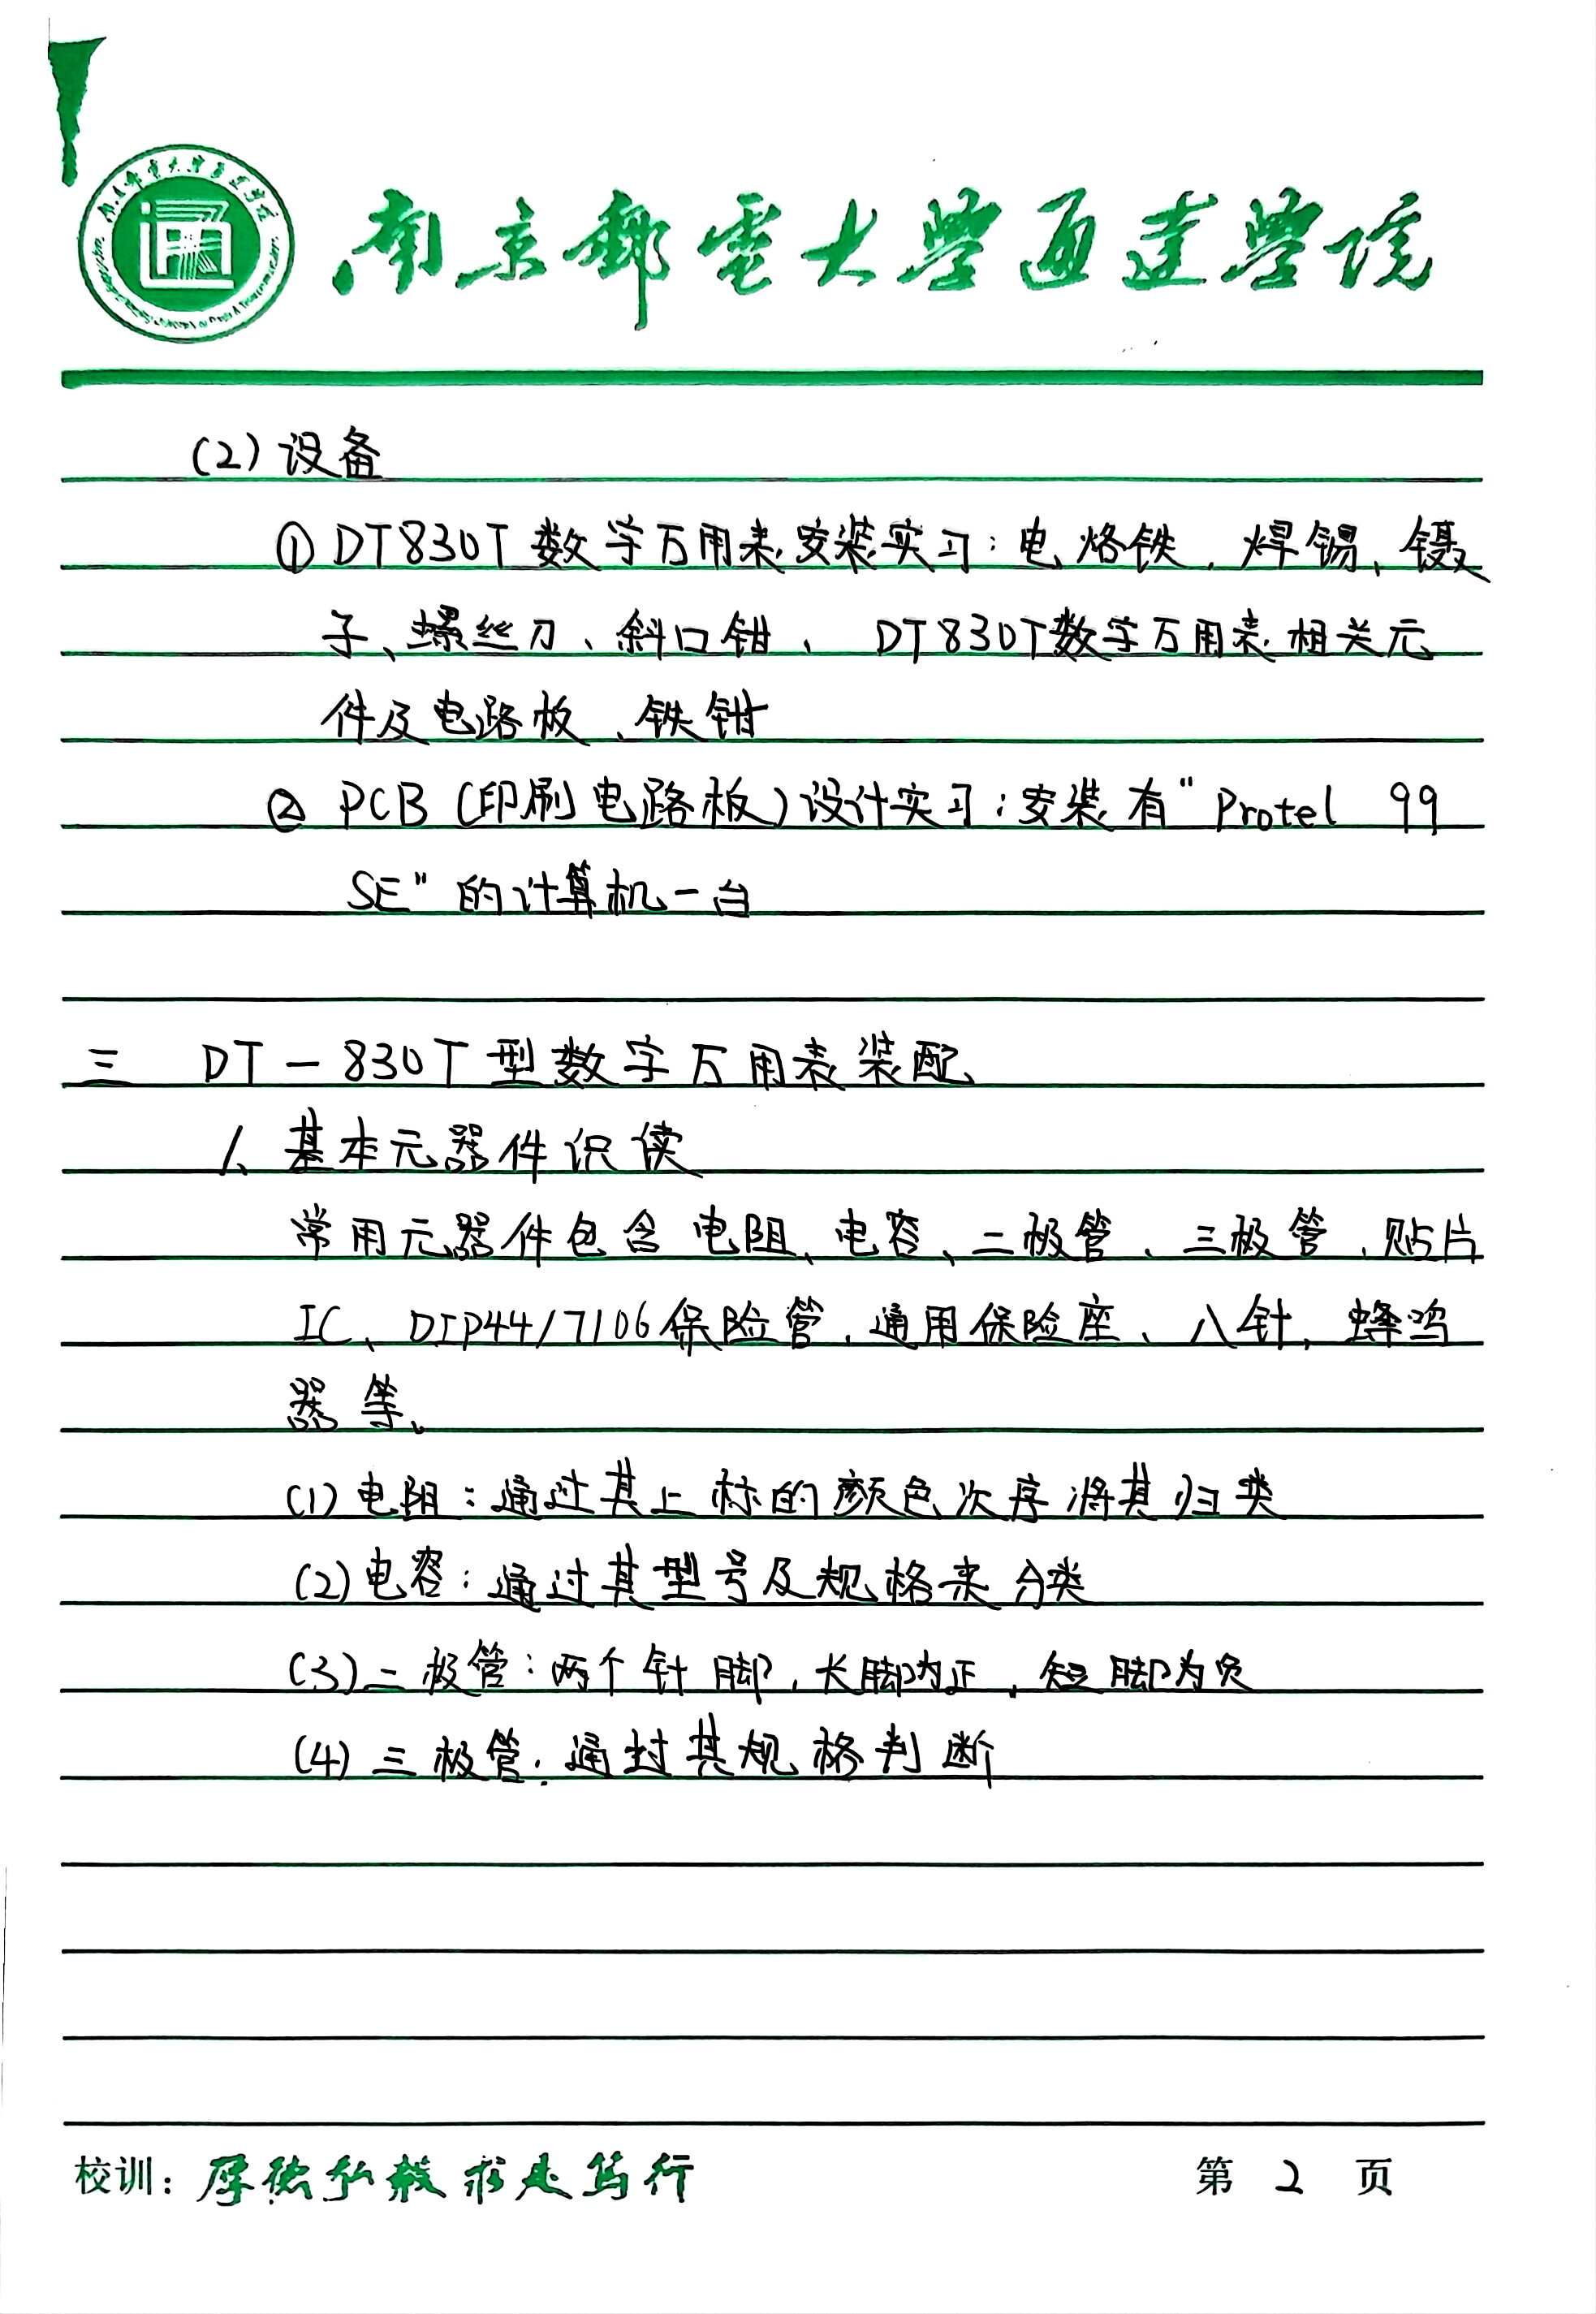 南京郵電大學通達學院
(2) 设备
① DT830T 数字万用表安装实习：电烙铁、焊锡、镊
子、螺丝刀、斜口钳、DT830T数字万用表相关元
件及电路板、铁钳
② PCB (印刷电路板) 设计实习：安装有"Protel 99
SE"的计算机一台
三 DT-830T型数字万用表装配
1、基本元器件识读
常用元器件包含电阻、电容、二极管、三极管、贴片
IC、DIP44/7106保险管、通用保险座、八针、蜂鸣
器等。
(1) 电阻：通过其上标的颜色次序将其归类
(2) 电容：通过其型号及规格来分类
(3) 二极管：两个针脚，长脚为正，短脚为负
(4) 三极管：通过其规格判断
校训：厚德弘毅 求是笃行
第 2 页